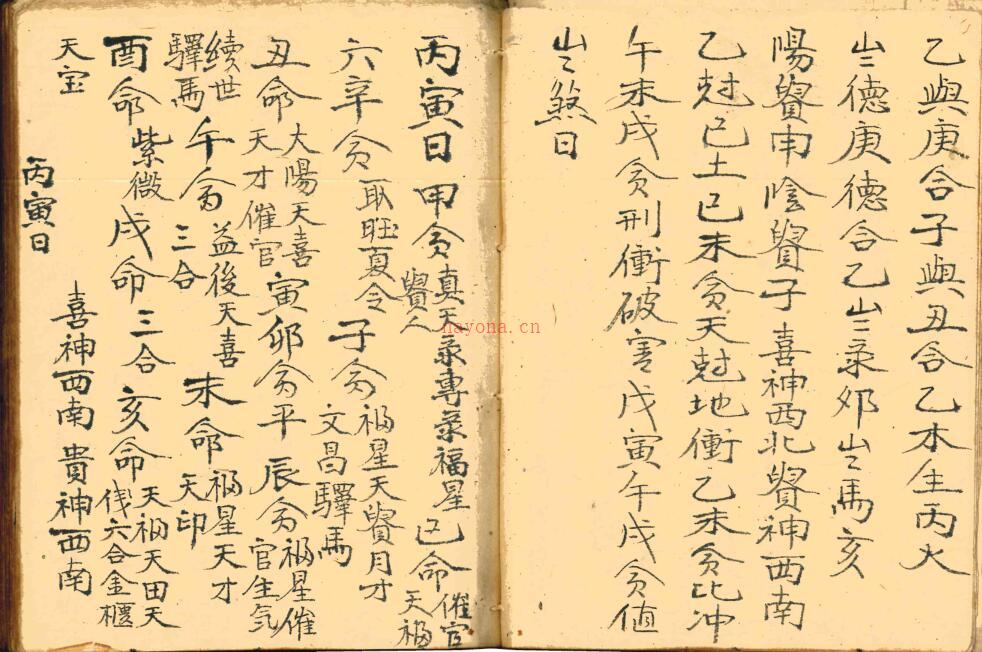 乙與庚合子與丑合乙木生丙火
岀德庚德合乙岀彔夘岀馬亥
陽貴南陰貴子喜神西北貴神西南
乙尅己土己未贪天尅地衝乙未贪比冲
午未戌贪刑衝破害戊寅午戌贪値
岀煞日
丙寅日 甲贪 真天彔專彔福星 貴人 巳命 催官 天福
六辛贪 取旺夏令 子贪 福星天貴月才 文昌驛馬
丑命 大陽天喜 天才催官 寅卯贪平 辰贪 福星催 官生气
續世 驛馬 午贪 益後天喜 三合 未命 福星天才 天印
酉命 紫微 戌命三合 亥命 天福天田天 六合金櫃
天宝
丙寅日 喜神西南 貴神西南
nayona.cn